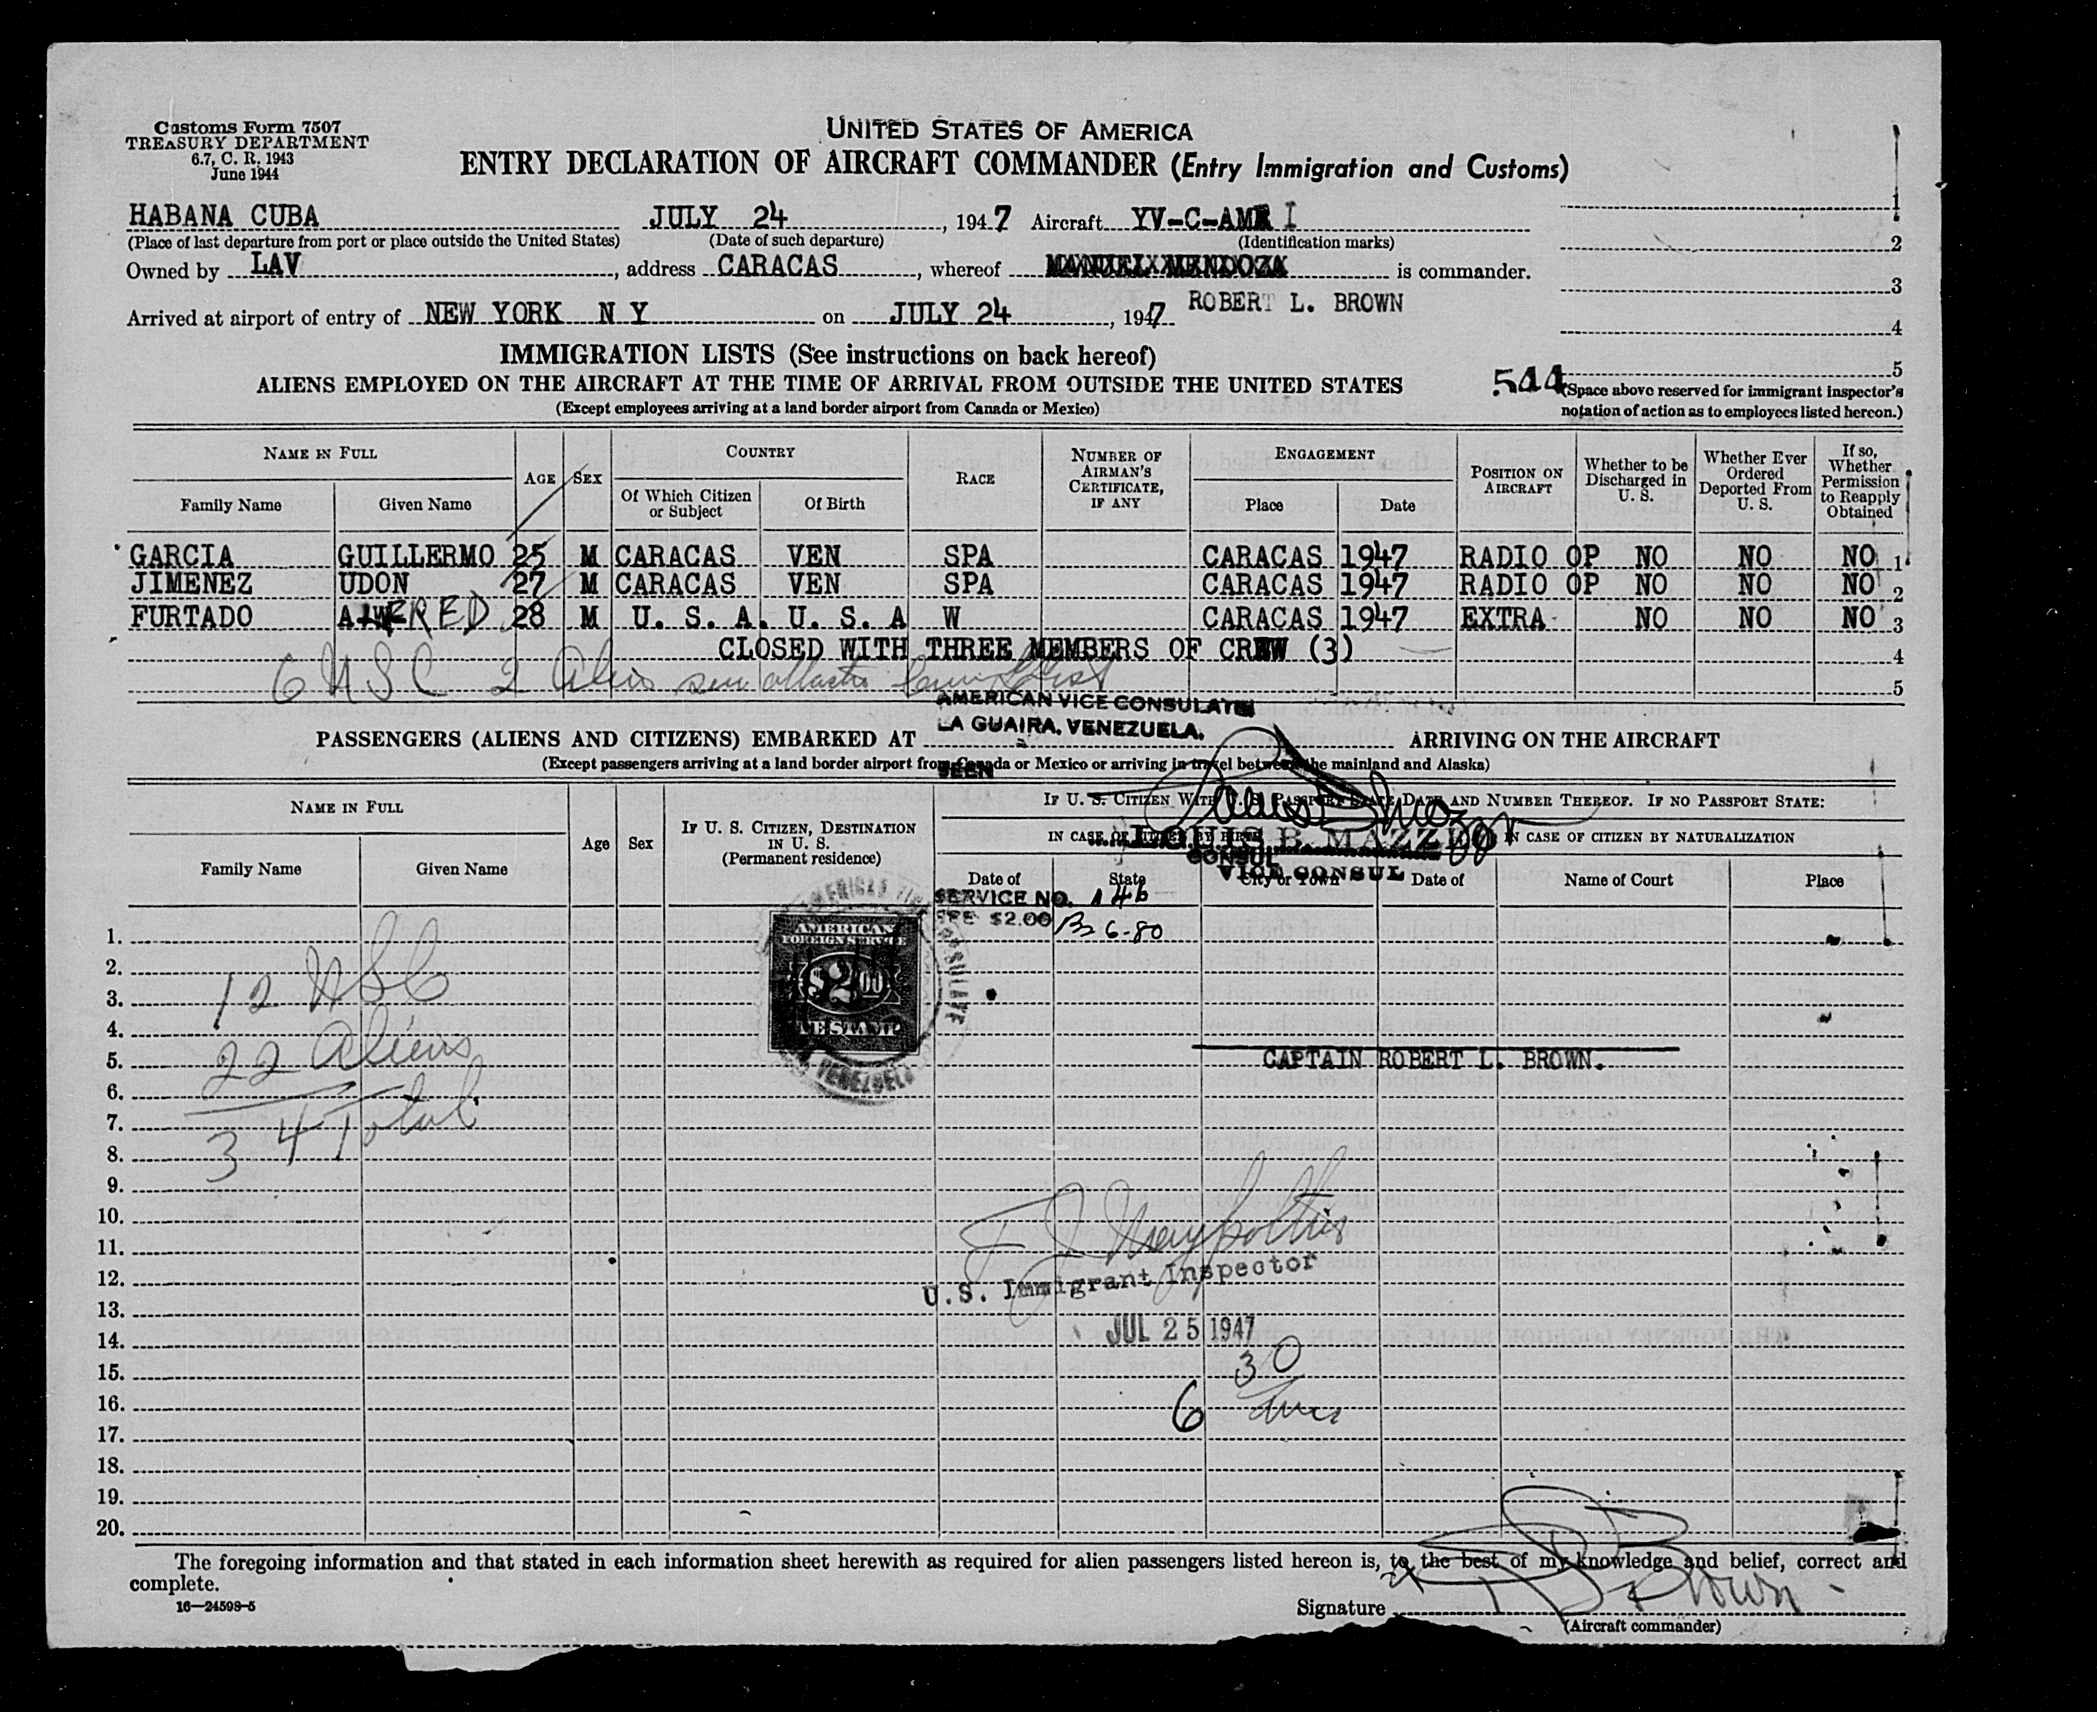 Customs Form 7507
TREASURY DEPARTMENT
6.7, C. R. 1943
June 1944
UNITED STATES OF AMERICA
ENTRY DECLARATION OF AIRCRAFT COMMANDER (Entry Immigration and Customs)
HABANA CUBA JULY 24, 1947 Aircraft YV-C-AM I
(Place of last departure from port or place outside the United States) (Date of such departure) (Identification marks)
Owned by LAV, address CARACAS, whereof MANUEL MENDOZA is commander.
ROBERT L. BROWN
Arrived at airport of entry of NEW YORK N Y on JULY 24, 1947
1
2
3
4
5
IMMIGRATION LISTS (See instructions on back hereof)
ALIENS EMPLOYED ON THE AIRCRAFT AT THE TIME OF ARRIVAL FROM OUTSIDE THE UNITED STATES
544
(Space above reserved for immigrant inspector's
notation of action as to employees listed hereon.)
(Except employees arriving at a land border airport from Canada or Mexico)
NAME IN FULL AGE SEX COUNTRY RACE NUMBER OF AIRMAN'S CERTIFICATE, IF ANY ENGAGEMENT POSITION ON AIRCRAFT Whether to be Discharged in U. S. Whether Ever Ordered Deported From U. S. If so, Whether Permission to Reapply Obtained
Family Name Given Name Of Which Citizen or Subject Of Birth Place Date
GARCIA GUILLERMO 25 M CARACAS VEN SPA CARACAS 1947 RADIO OP NO NO NO 1
JIMENEZ UDON 27 M CARACAS VEN SPA CARACAS 1947 RADIO OP NO NO NO 2
FURTADO ALFRED 28 M U. S. A. U. S. A W CARACAS 1947 EXTRA NO NO NO 3
CLOSED WITH THREE MEMBERS OF CREW (3) 4
6 USC 2 Aliens see List 5
AMERICAN VICE CONSULATE
LA GUAIRA, VENEZUELA.
PASSENGERS (ALIENS AND CITIZENS) EMBARKED AT ARRIVING ON THE AIRCRAFT
(Except passengers arriving at a land border airport from Canada or Mexico or arriving in travel between the mainland and Alaska)
SEEN
NAME IN FULL Age Sex IF U. S. CITIZEN, DESTINATION IN U. S. (Permanent residence) IF U. S. CITIZEN WITH U. S. PASSPORT STATE DATE AND NUMBER THEREOF. IF NO PASSPORT STATE:
IN CASE OF CITIZEN BY BIRTH IN CASE OF CITIZEN BY NATURALIZATION
LOUIS B. MAZZEO
CONSUL
VICE CONSUL
Family Name Given Name Date of State City or Town Date of Name of Court Place
SERVICE NO. 146
FEE $2.00
6-80
AMERICAN
FOREIGN SERVICE
$2.00
FEE STAMP
VENEZUELA
1.
2.
3.
4.
5.
6.
7.
8.
9.
10.
11.
12.
13.
14.
15.
16.
17.
18.
19.
20.
12 USC
22 Aliens
34 Total
CAPTAIN ROBERT L. BROWN.
U.S. Immigrant Inspector
JUL 25 1947
6 30
The foregoing information and that stated in each information sheet herewith as required for alien passengers listed hereon is, to the best of my knowledge and belief, correct and
complete.
16—24598-5
Signature R L Brown
(Aircraft commander)